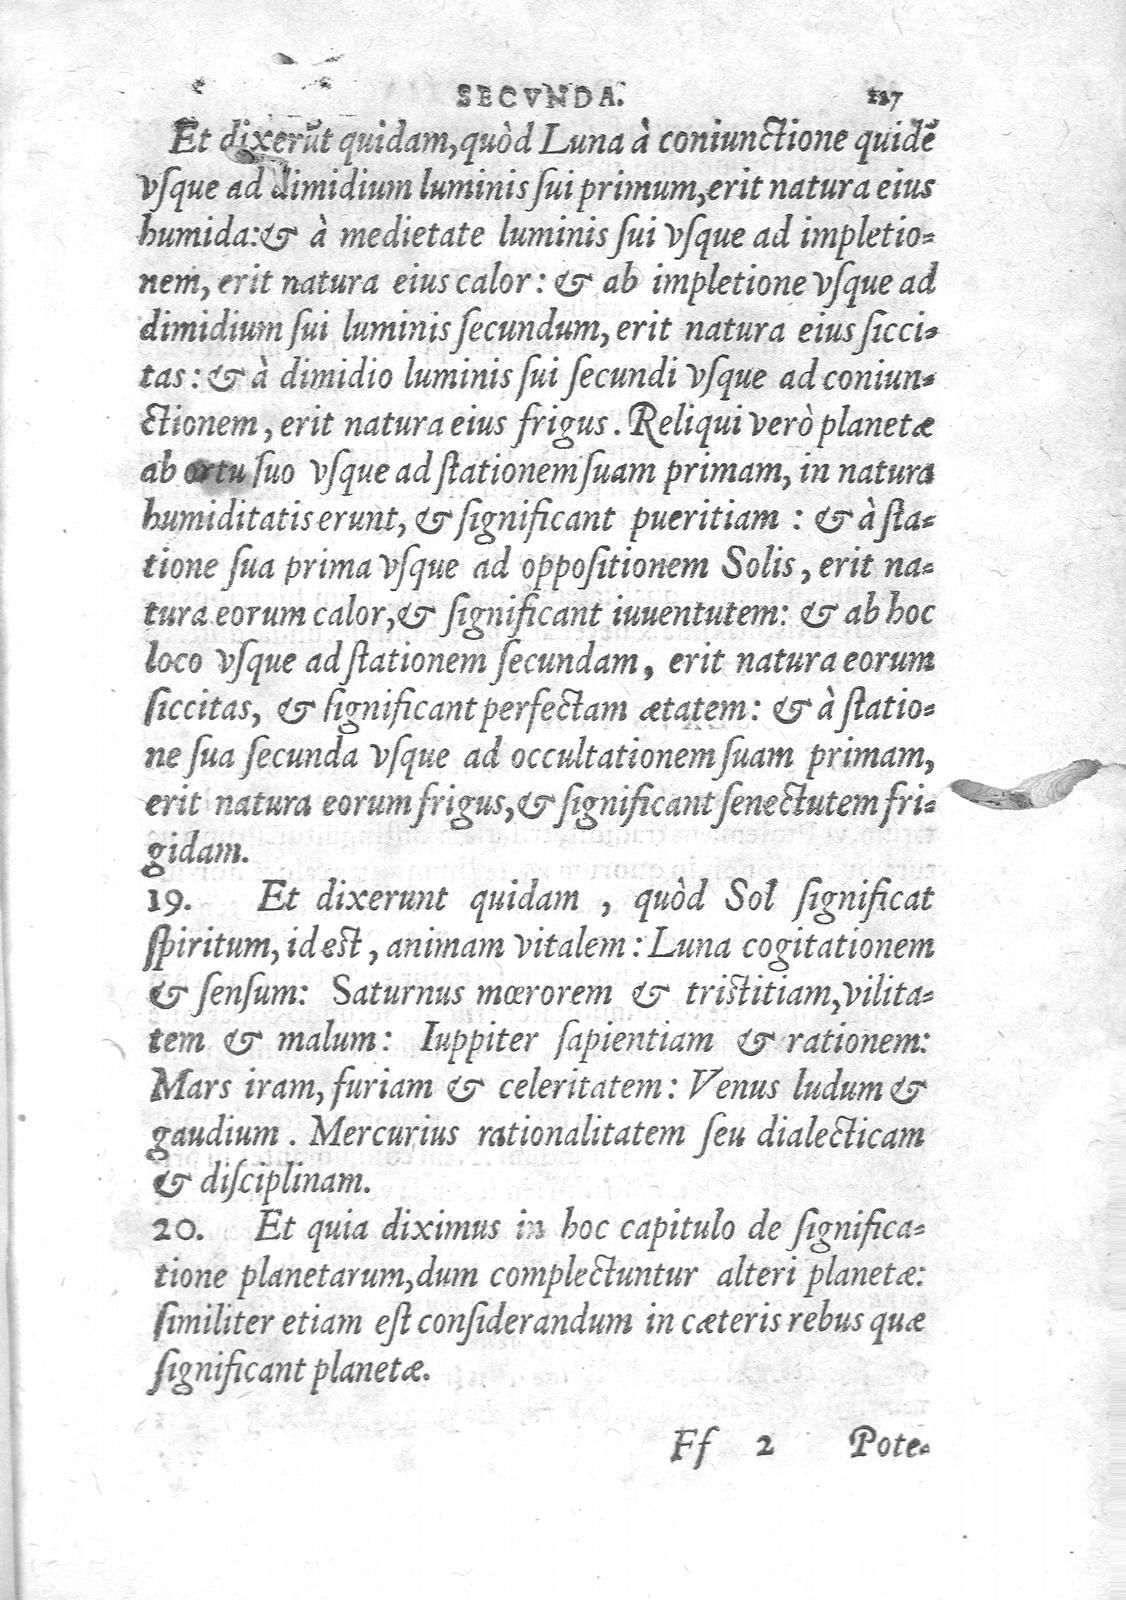 SECVNDA. 117
Et dixerũt quidam, quòd Luna à coniunctione quidẽ
vſque ad dimidium luminis ſui primum, erit natura eius
humida: & à medietate luminis ſui vſque ad impletio-
nem, erit natura eius calor: & ab impletione vſque ad
dimidium ſui luminis ſecundum, erit natura eius ſicci-
tas: & à dimidio luminis ſui ſecundi vſque ad coniun-
ctionem, erit natura eius frigus. Reliqui verò planetæ
ab ortu ſuo vſque ad ſtationem ſuam primam, in natura
humiditatis erunt, & ſignificant pueritiam : & à ſta-
tione ſua prima vſque ad oppoſitionem Solis, erit na-
tura eorum calor, & ſignificant iuuentutem: & ab hoc
loco vſque ad ſtationem ſecundam, erit natura eorum
ſiccitas, & ſignificant perfectam ætatem: & à ſtatio-
ne ſua ſecunda vſque ad occultationem ſuam primam,
erit natura eorum frigus, & ſignificant ſenectutem fri-
gidam.
19. Et dixerunt quidam , quòd Sol ſignificat
ſpiritum, id est, animam vitalem: Luna cogitationem
& ſenſum: Saturnus mœrorem & triſtitiam, vilita-
tem & malum: Iuppiter ſapientiam & rationem:
Mars iram, furiam & celeritatem: Venus ludum &
gaudium . Mercurius rationalitatem ſeu dialecticam
& diſciplinam.
20. Et quia diximus in hoc capitulo de ſignifica-
tione planetarum, dum complectuntur alteri planetæ:
ſimiliter etiam eſt conſiderandum in cæteris rebus quæ
ſignificant planetæ.
Ff 2 Pote-